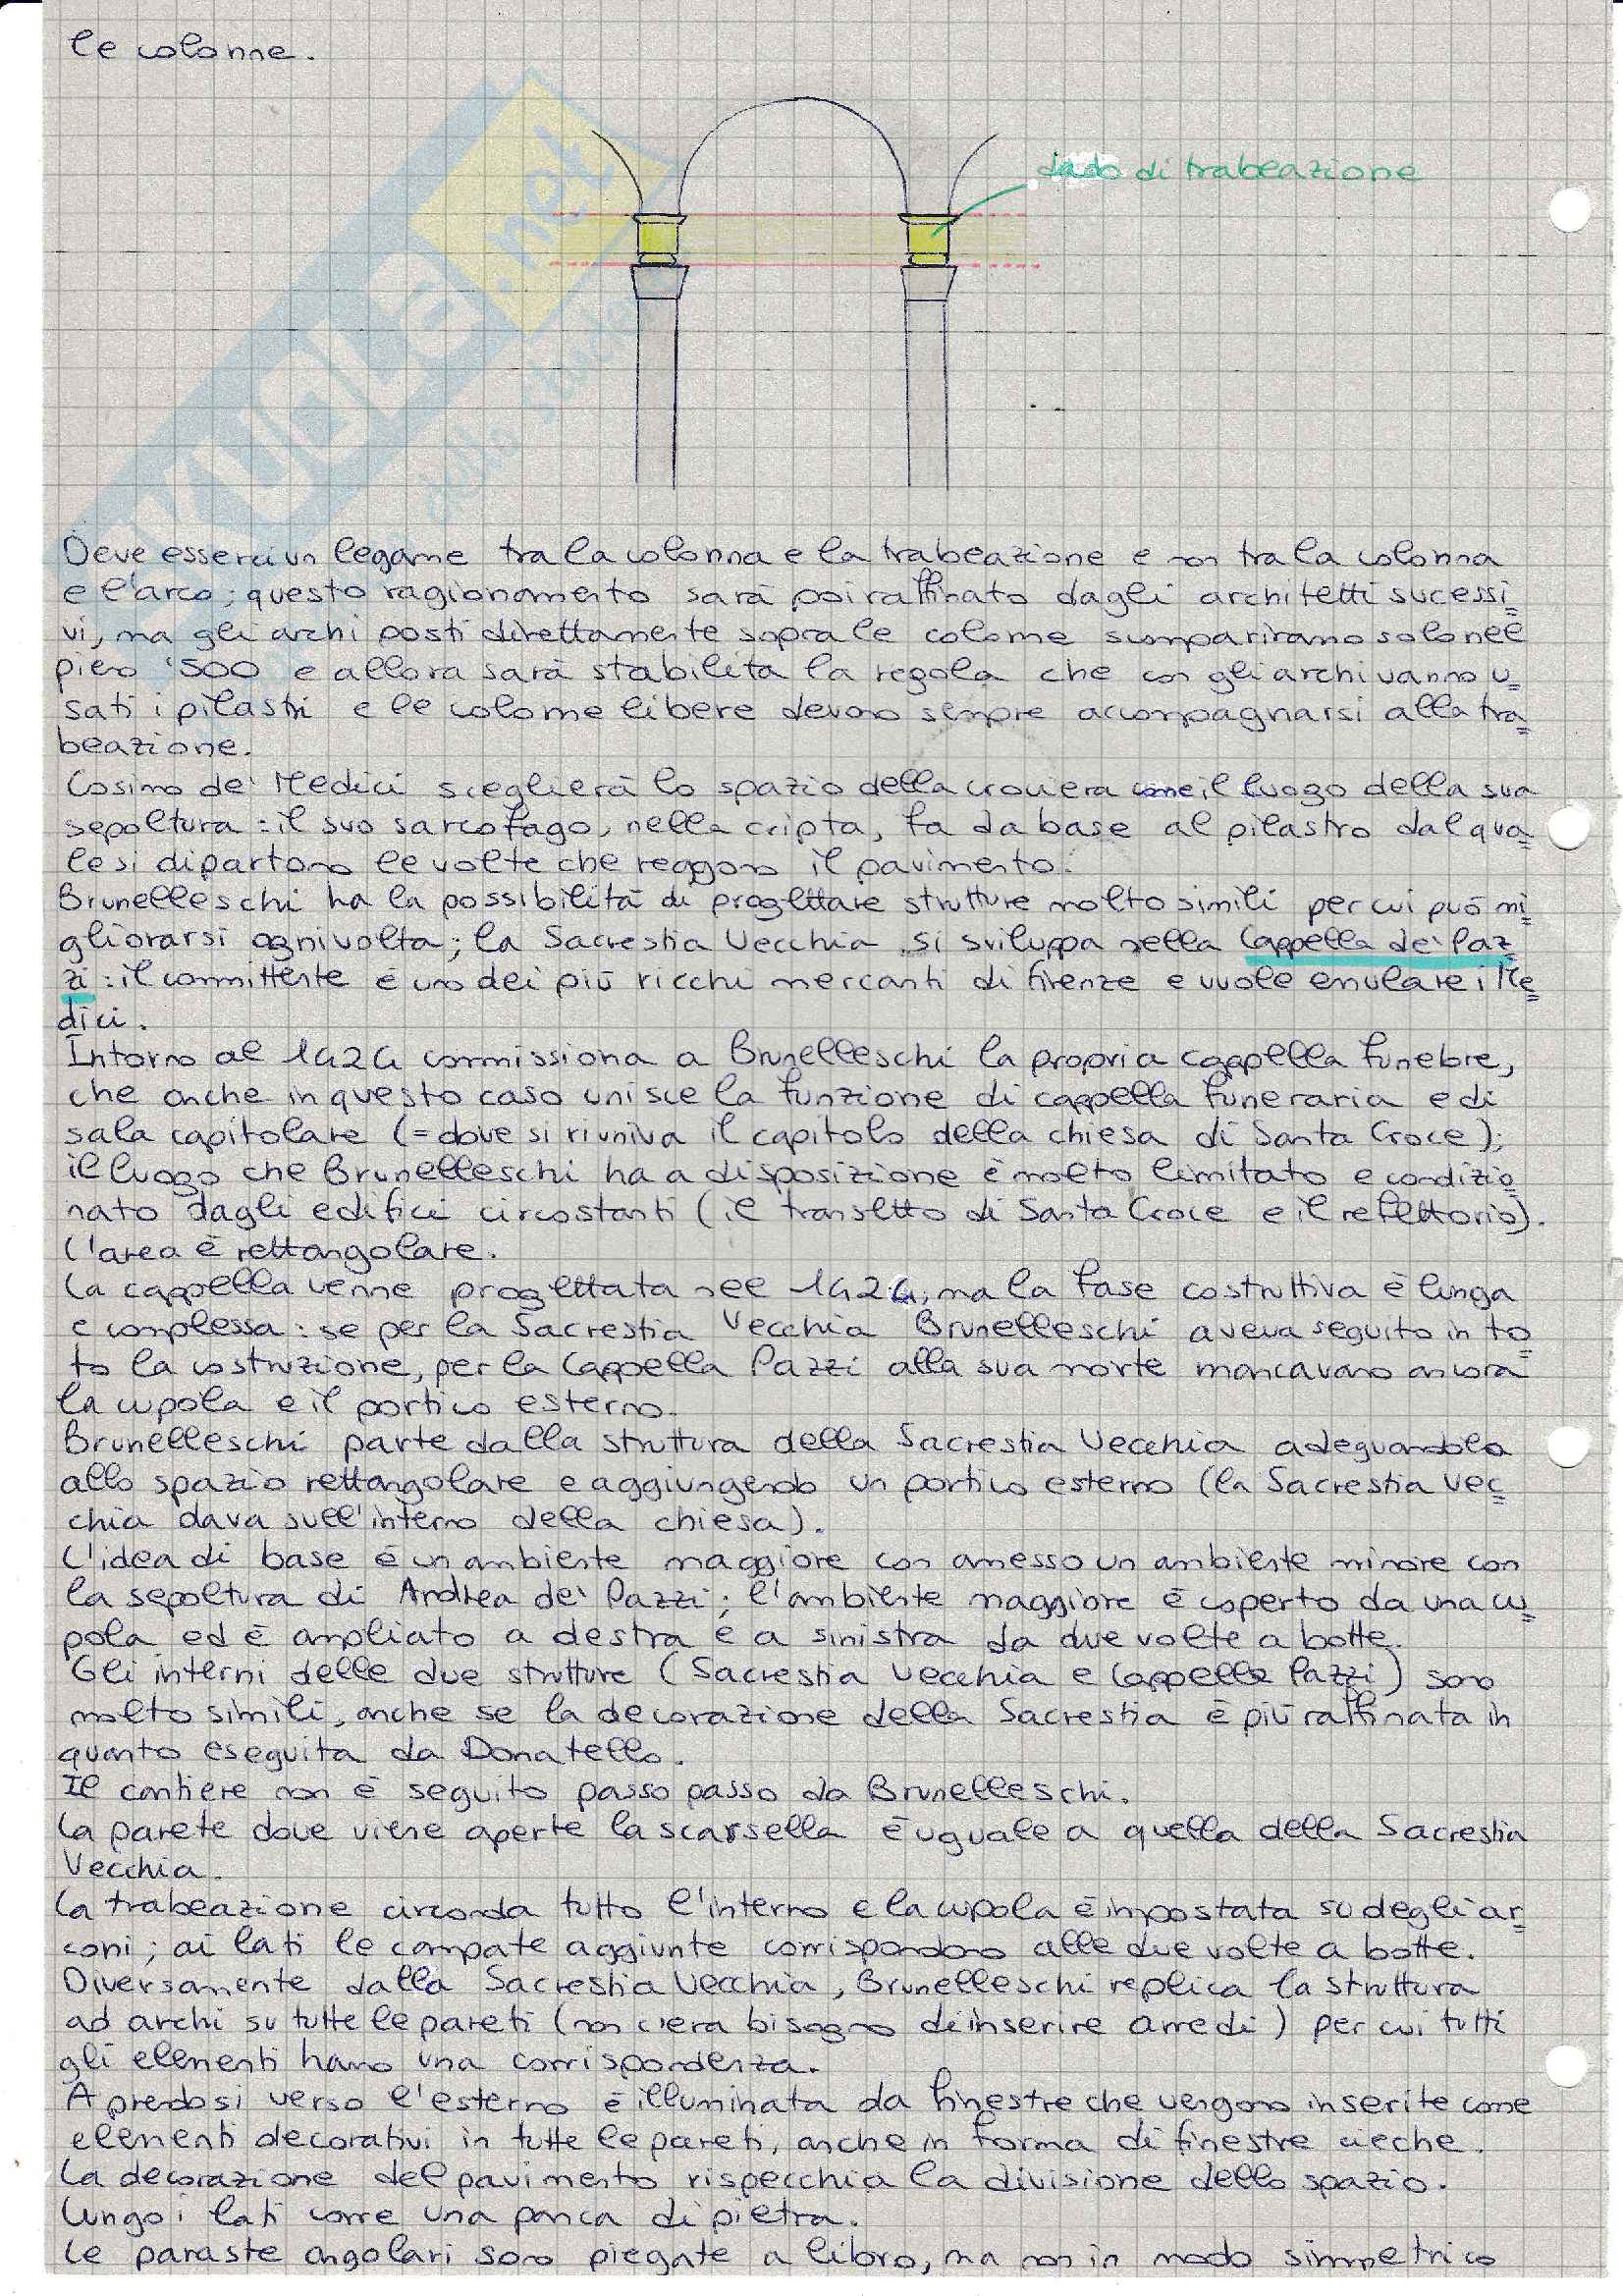 le colonne.
dado di trabeazione
SKUOLA.net
dello studente
Deve esserci un legame tra la colonna e la trabeazione e non tra la colonna
e l'arco; questo ragionamento sarà poi raffinato dagli architetti sucessi=
vi, ma gli archi posti direttamente sopra le colonne scompariranno solo nel
pieno '500 e allora sarà stabilita la regola che con gli archi vanno u=
sati i pilastri e le colonne libere devono sempre accompagnarsi alla tra=
beazione.
Cosimo de' Medici sceglierà lo spazio della crociera come il luogo della sua
sepoltura: il suo sarcofago, nella cripta, fa da base al pilastro dal qua=
le si dipartono le volte che reggono il pavimento.
Brunelleschi ha la possibilità di progettare strutture molto simili per cui può mi=
gliorarsi ogni volta; la Sacrestia Vecchia si sviluppa nella Cappella de' Paz=
zi: il committente è uno dei più ricchi mercanti di Firenze e vuole emulare i Me=
dici.
Intorno al 1424 commissiona a Brunelleschi la propria cappella funebre,
che anche in questo caso unisce la funzione di cappella funeraria e di
sala capitolare (= dove si riuniva il capitolo della chiesa di Santa Croce);
il luogo che Brunelleschi ha a disposizione è molto limitato e condizio=
nato dagli edifici circostanti (il transetto di Santa Croce e il refettorio).
L'area è rettangolare.
La cappella venne progettata nel 1424, ma la fase costruttiva è lunga
e complessa: se per la Sacrestia Vecchia Brunelleschi aveva seguito in to=
to la costruzione, per la Cappella Pazzi alla sua morte mancavano ancora
la cupola e il portico esterno.
Brunelleschi parte dalla struttura della Sacrestia Vecchia adeguandola
allo spazio rettangolare e aggiungendo un portico esterno (la Sacrestia Vec=
chia dava sull'interno della chiesa).
L'idea di base è un ambiente maggiore con annesso un ambiente minore con
la sepoltura di Andrea de' Pazzi; l'ambiente maggiore è coperto da una cu=
pola ed è ampliato a destra e a sinistra da due volte a botte.
Gli interni delle due strutture (Sacrestia Vecchia e Cappella Pazzi) sono
molto simili, anche se la decorazione della Sacrestia è più raffinata in
quanto eseguita da Donatello.
Il cantiere non è seguito passo passo da Brunelleschi.
La parete dove viene aperte la scarsella è uguale a quella della Sacrestia
Vecchia.
La trabeazione circonda tutto l'interno e la cupola è impostata su degli ar=
coni; ai lati le campate aggiunte corrispondono alle due volte a botte.
Diversamente dalla Sacrestia Vecchia, Brunelleschi replica la struttura
ad archi su tutte le pareti (non c'era bisogno di inserire arredi) per cui tutti
gli elementi hanno una corrispondenza.
Aprendosi verso l'esterno è illuminata da finestre che vengono inserite come
elementi decorativi in tutte le pareti, anche in forma di finestre cieche.
La decorazione del pavimento rispecchia la divisione dello spazio.
Lungo i lati corre una panca di pietra.
Le paraste angolari sono piegate a libro, ma non in modo simmetrico